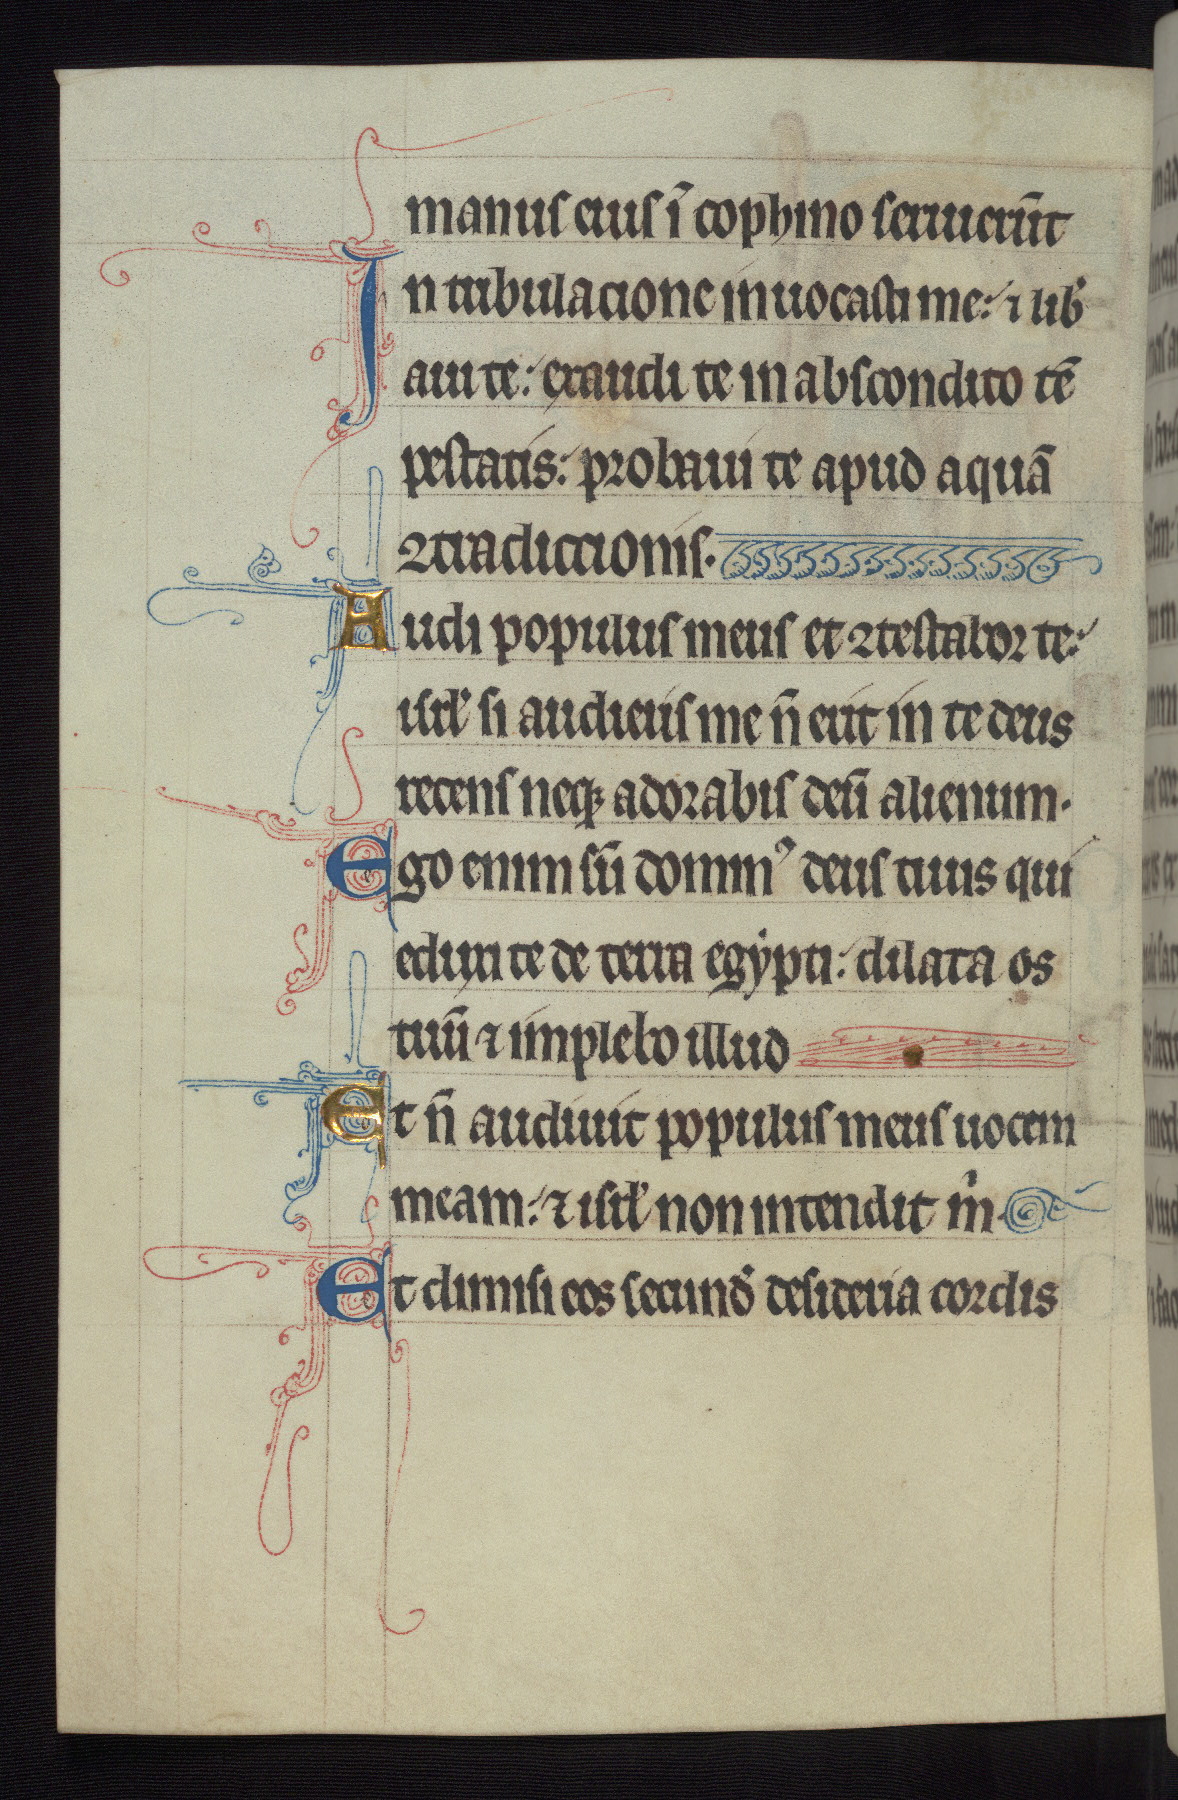 manus eius ī cophino seruierūt
In tribulacione inuocasti me: ⁊ lib̾
aui te: exaudi te in abscondito tē
pestatis: probaui te apud aquā
ꝯtradiccionis.
Audi populus meus et ꝯtestabor te:
isrl̾ si audieris me n̄ erit in te deus
recens neqꝫ adorabis deū alienum.
Ego enim sū dominꝰ deus tuus qui
eduxi te de terra egẏpti: dilata os
tuū ⁊ implebo illud
Et n̄ audiuit populus meus uocem
meam: ⁊ isrl̾ non intendit m̍
Et dimisi eos secund̄ desideria cordis